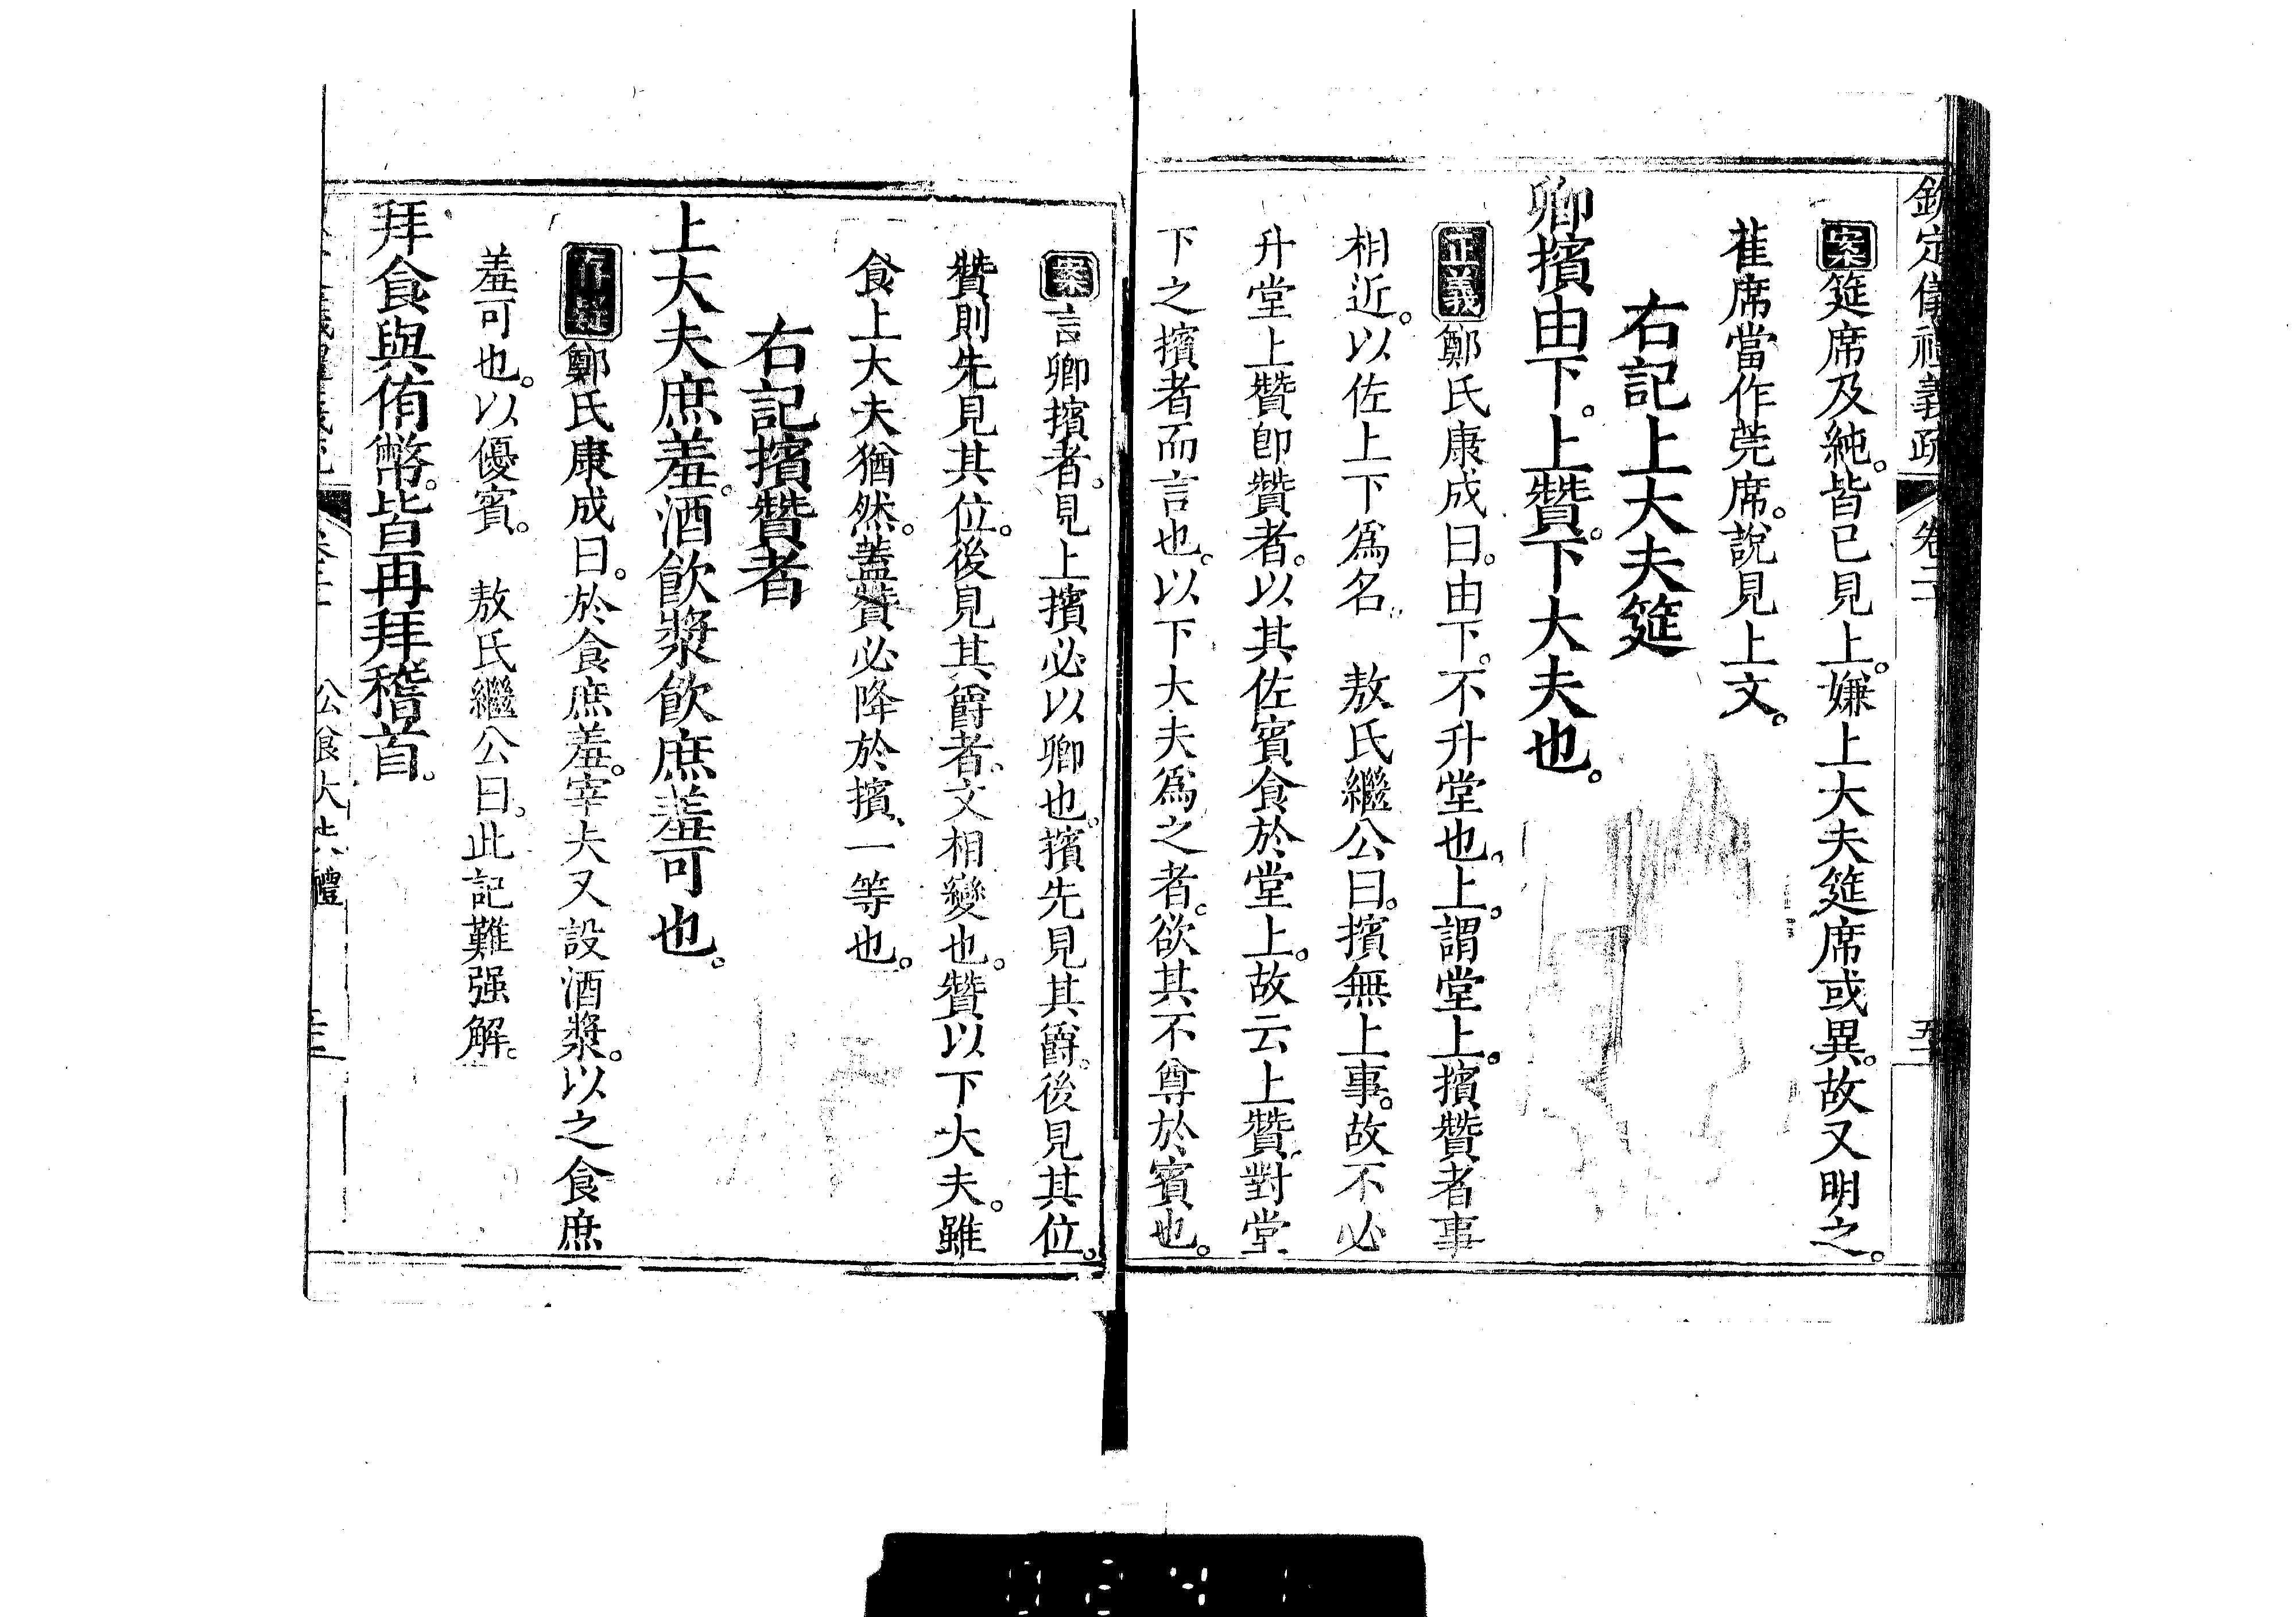 欽定儀禮義疏 卷二十
案筵席及純。皆已見上。嫌上大夫筵席或異。故又明之。
萑席當作莞席。說見上文。
右記上大夫筵
卿擯由下。上贊。下大夫也。
正義鄭氏康成曰。由下。不升堂也。上。謂堂上。擯贊者事
相近。以佐上下爲名。 敖氏繼公曰。擯無上事。故不必
升堂上贊卽贊者。以其佐賓食於堂上。故云上贊。對堂
下之擯者而言也。以下大夫爲之者。欲其不尊於賓也。
案言卿擯者。見上擯必以卿也。擯先見其爵。後見其位。
贊則先見其位。後見其爵者。文相變也。贊以下大夫。雖
食上大夫猶然。蓋贊必降於擯、一等也。
右記擯贊者
上大夫庶羞。酒飮漿飮庶羞可也。
存疑鄭氏康成曰。於食庶羞。宰夫又設酒漿。以之食庶
羞可也。以優賓。 敖氏繼公曰。此記難强解。
拜食與侑幣。皆再拜稽首。
公食大夫禮